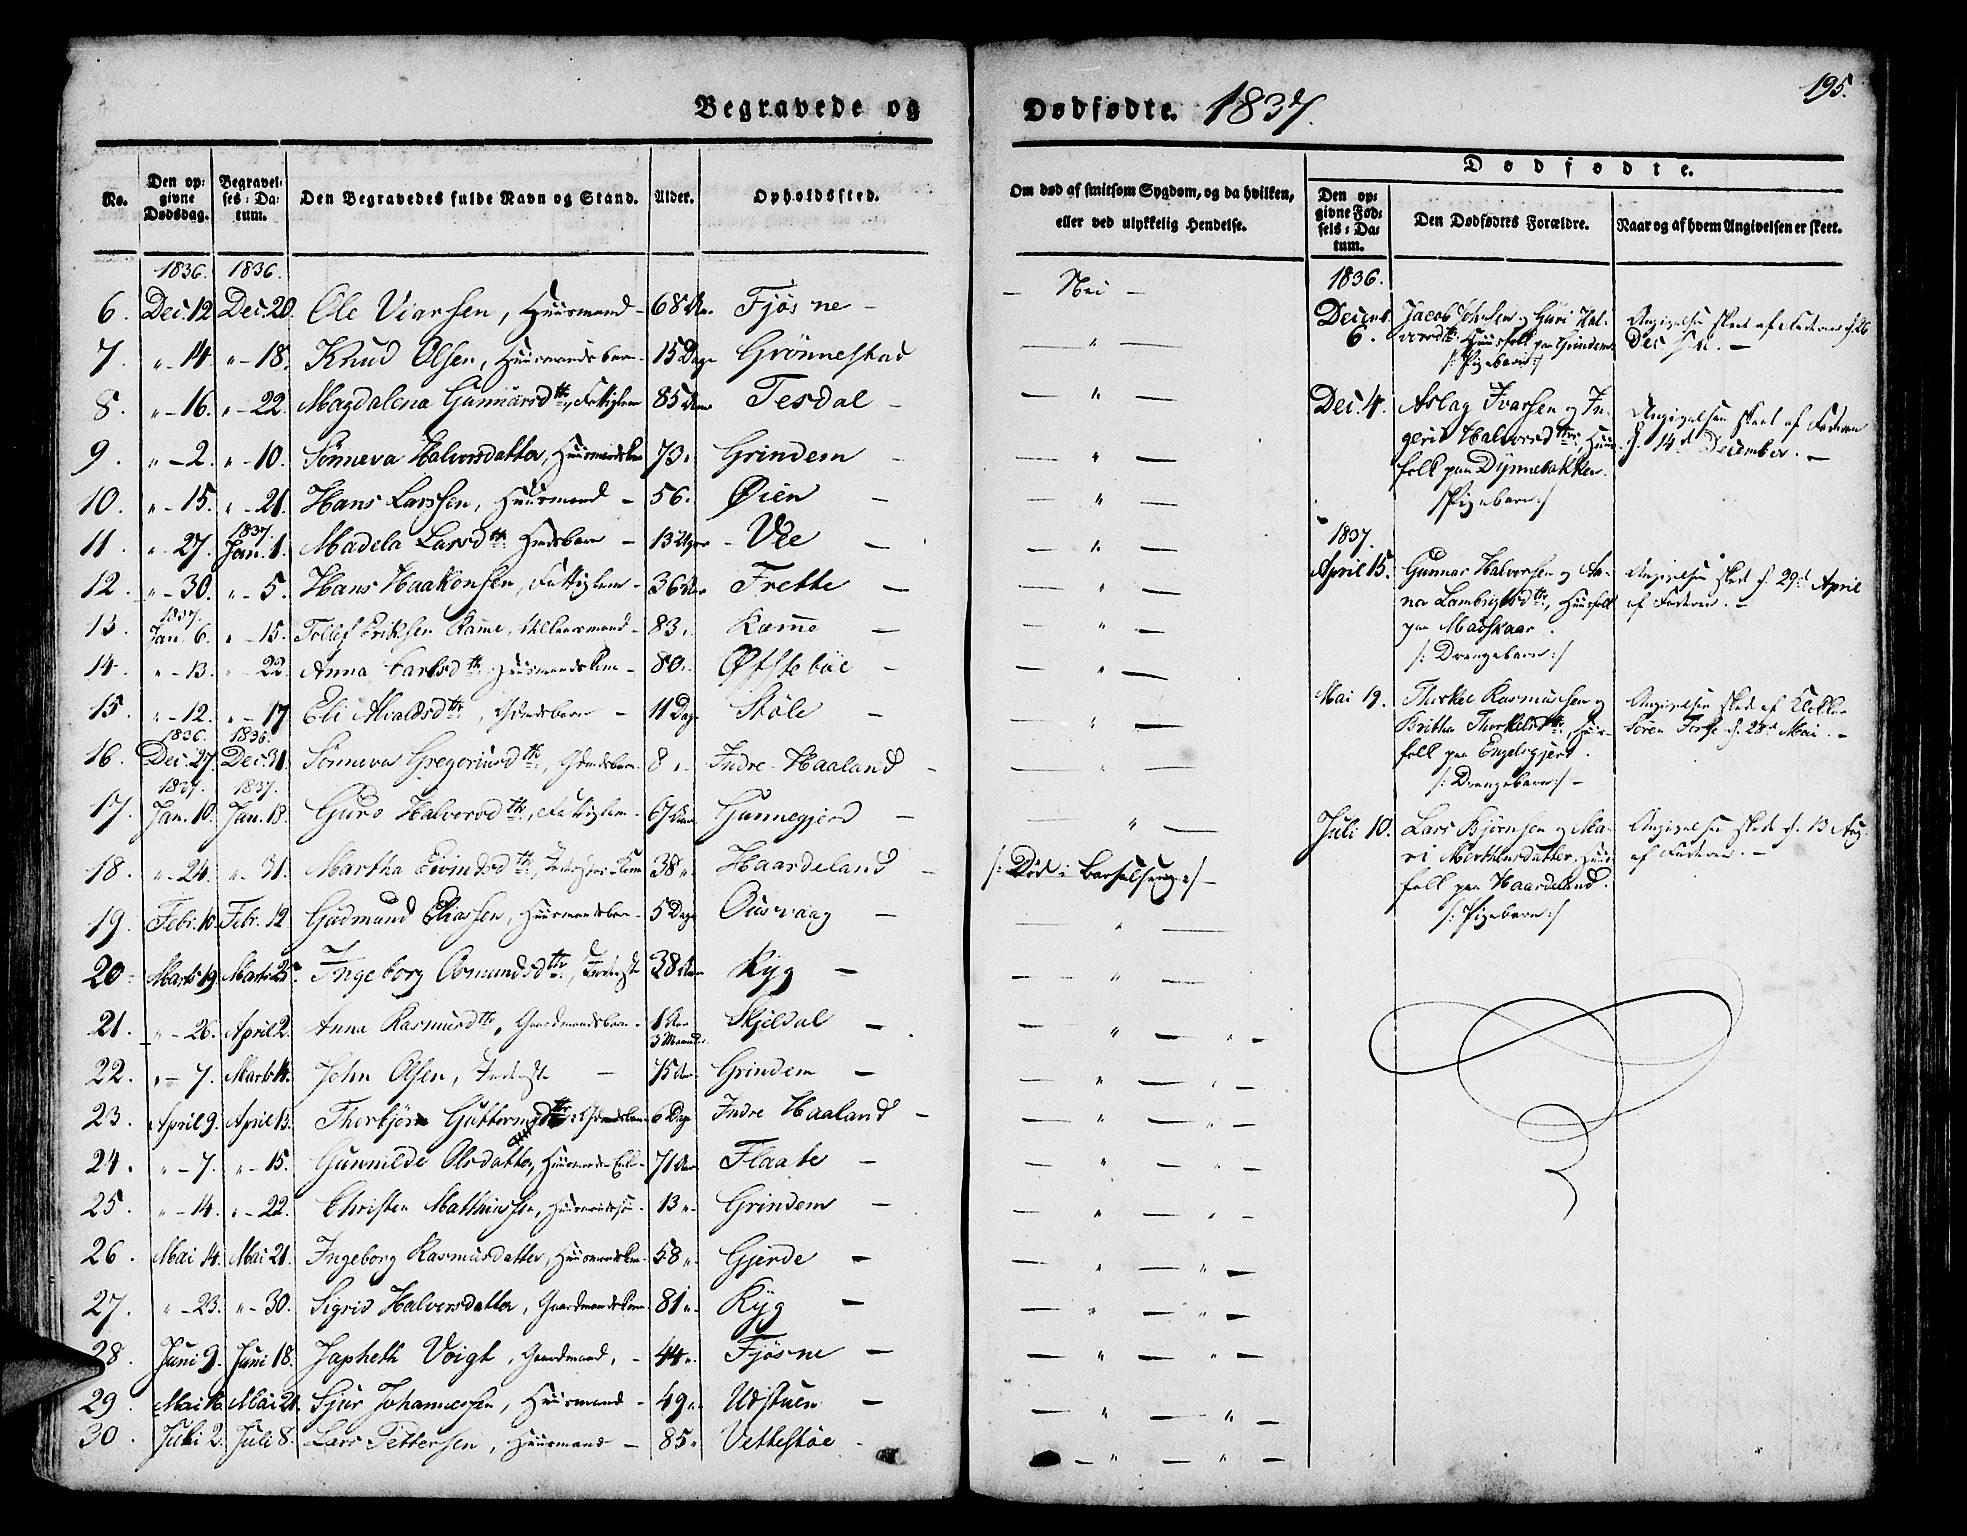 Begravede og
Dødfødte. 1837.
195.
No.
Den opgivne Dødsdag.
Begravelses-Datum.
Den Begravedes fulde Navn og Stand.
Alder.
Opholdssted.
Om død af smitsom Sygdom, og da hvilken, eller ved ulykkelig Hendelse.
Dødfødte.
Den opgivne Fødsels-Datum.
Den Dødfødtes Forældre.
Naar og af hvem Angivelsen er skeet.
1836. 1836.
6. Dec. 12 Dec. 20. Ole Viarsen, Huusmand - 68 Aar Fjøsne - Nei -
7. " - 14. " - 18. Knud Olsen, Huusmandsbarn 15 Dage Grønnestad - " -
8. " - 16. " - 22. Magdalena Gunnarsdtr., Fattiglem 85 Aar Tesdal - " -
9. " - 2. " - 10. Sønneva Halvorsdatter, 73 " Grindem - " -
10. " - 15. " - 21. Hans Larssen, Huusmand - 56. Øien - " -
1837.
11. " - 27. Jan. 1. Madela Larsdtr. - 13 Uger Vee - " -
12. " - 30. " - 5. Hans Haakonsen, Fattiglem - 36 Aar Frette - " -
1837.
13. Jan. 6. " - 15. Tollef Eriksen Ramme, - 83 " Ramme - " -
14. " - 13. " - 22. Anna Carlsdtr. Huusmandskone - 80 " Øfstebøe - " -
15. " - 12. " - 17 Eli Alvaldsdtr., - 11 Dage Støle - " -
1836. 1836.
16. Dec. 27. Dec. 31. Sønneva Gregoriusdtr., 8 " Indre Haaland - " -
1837. 1837.
17. Jan. 10. Jan. 18. Guro Halvorsdtr., Fattiglem - 67 Aar Gunnegjerd - " -
18. " - 24. " - 31. Martha Eivindsdtr., 38 " Haardeland - /: Død i Barselseng :/ -
19. Febr. 10. Febr. 12 Gudmund Eliassen, Huusmandsbarn - 5 Dage Ousvaag - " -
20. Marts 19 Marts 25. Ingeborg Osmundsdtr., Inderste 38 Aar Ryg - " -
21. " - 26. April 2. Anna Rasmusdtr., Gaardmandsbarn - 1 Aar 3 Maaned. Skjeldal - " - " -
22. " - 7. Marts 14. John Olsen, Inderste - 75 Aar Grindem - " - " -
23. April 9. April 13. Thorbjør Guttormsdtr. 6 Dage Indre Haaland - " - " -
24. " - 7. " - 15. Gunnilde Olsdatter, Huusmands Enke - 71 Aar Flaate - " - " -
25. " - 14. " - 22. Christen Mathiassen, Huusmandssøn - 13 " Grindem - " - " -
26. Mai 14. Mai 21. Ingeborg Rasmusdatter, Huusmandskone 58 " Gjerde - " - " -
27. " - 23. " - 30. Sigrid Halvorsdatter, Gaardmandskone 81 " Ryg - " - " -
28. Juni 9. Juni 18. Japheth Voigt, Gaardmand, - 44 " Fjøsne - " - " -
29. Mai 16. Mai 21. Sjur Johannessen, Huusmand - 49 " Udstuen - " - " -
30. Juli 2. Juli 8. Lars Pettersen, Huusmand - 85 " Vettestøe - " - " -
1836.
Decemb. 6. Jacob Johnsen og Guri Halvorsdtr. Huusfolk paa Grindem
/: Pigebarn :/
Angivelsen skeet af Faderen d. 26 Dec.
Dec. 4. Aslag Ivarsen og Ingerid Halvorsdtr., Huusfolk paa Dynnebakken.
/: Pigebarn :/
Angivelsen skeet af Faderen d. 14de December. -
1837.
April 15. Gunnar Halvorsen og Anna Lambrigtsdtr., Huusfolk paa Madskaar.
/: Drengebarn :/
Angivelsen skeet d. 29d April af Faderen. -
Mai 19. Thorkel Rasmussen og Britha Thorkelsdtr., Huusfolk paa Engelsgjerd.
/: Drengebarn :/ -
Angivelsen skeet af Søren d. 28d Mai. -
Juli 10. Lars Bjørnsen og Mari Mortensdatter, Huusfolk paa Haardeland.
/: Pigebarn :/
Angivelsen skeet d. 13 Aug. af Faderen. -